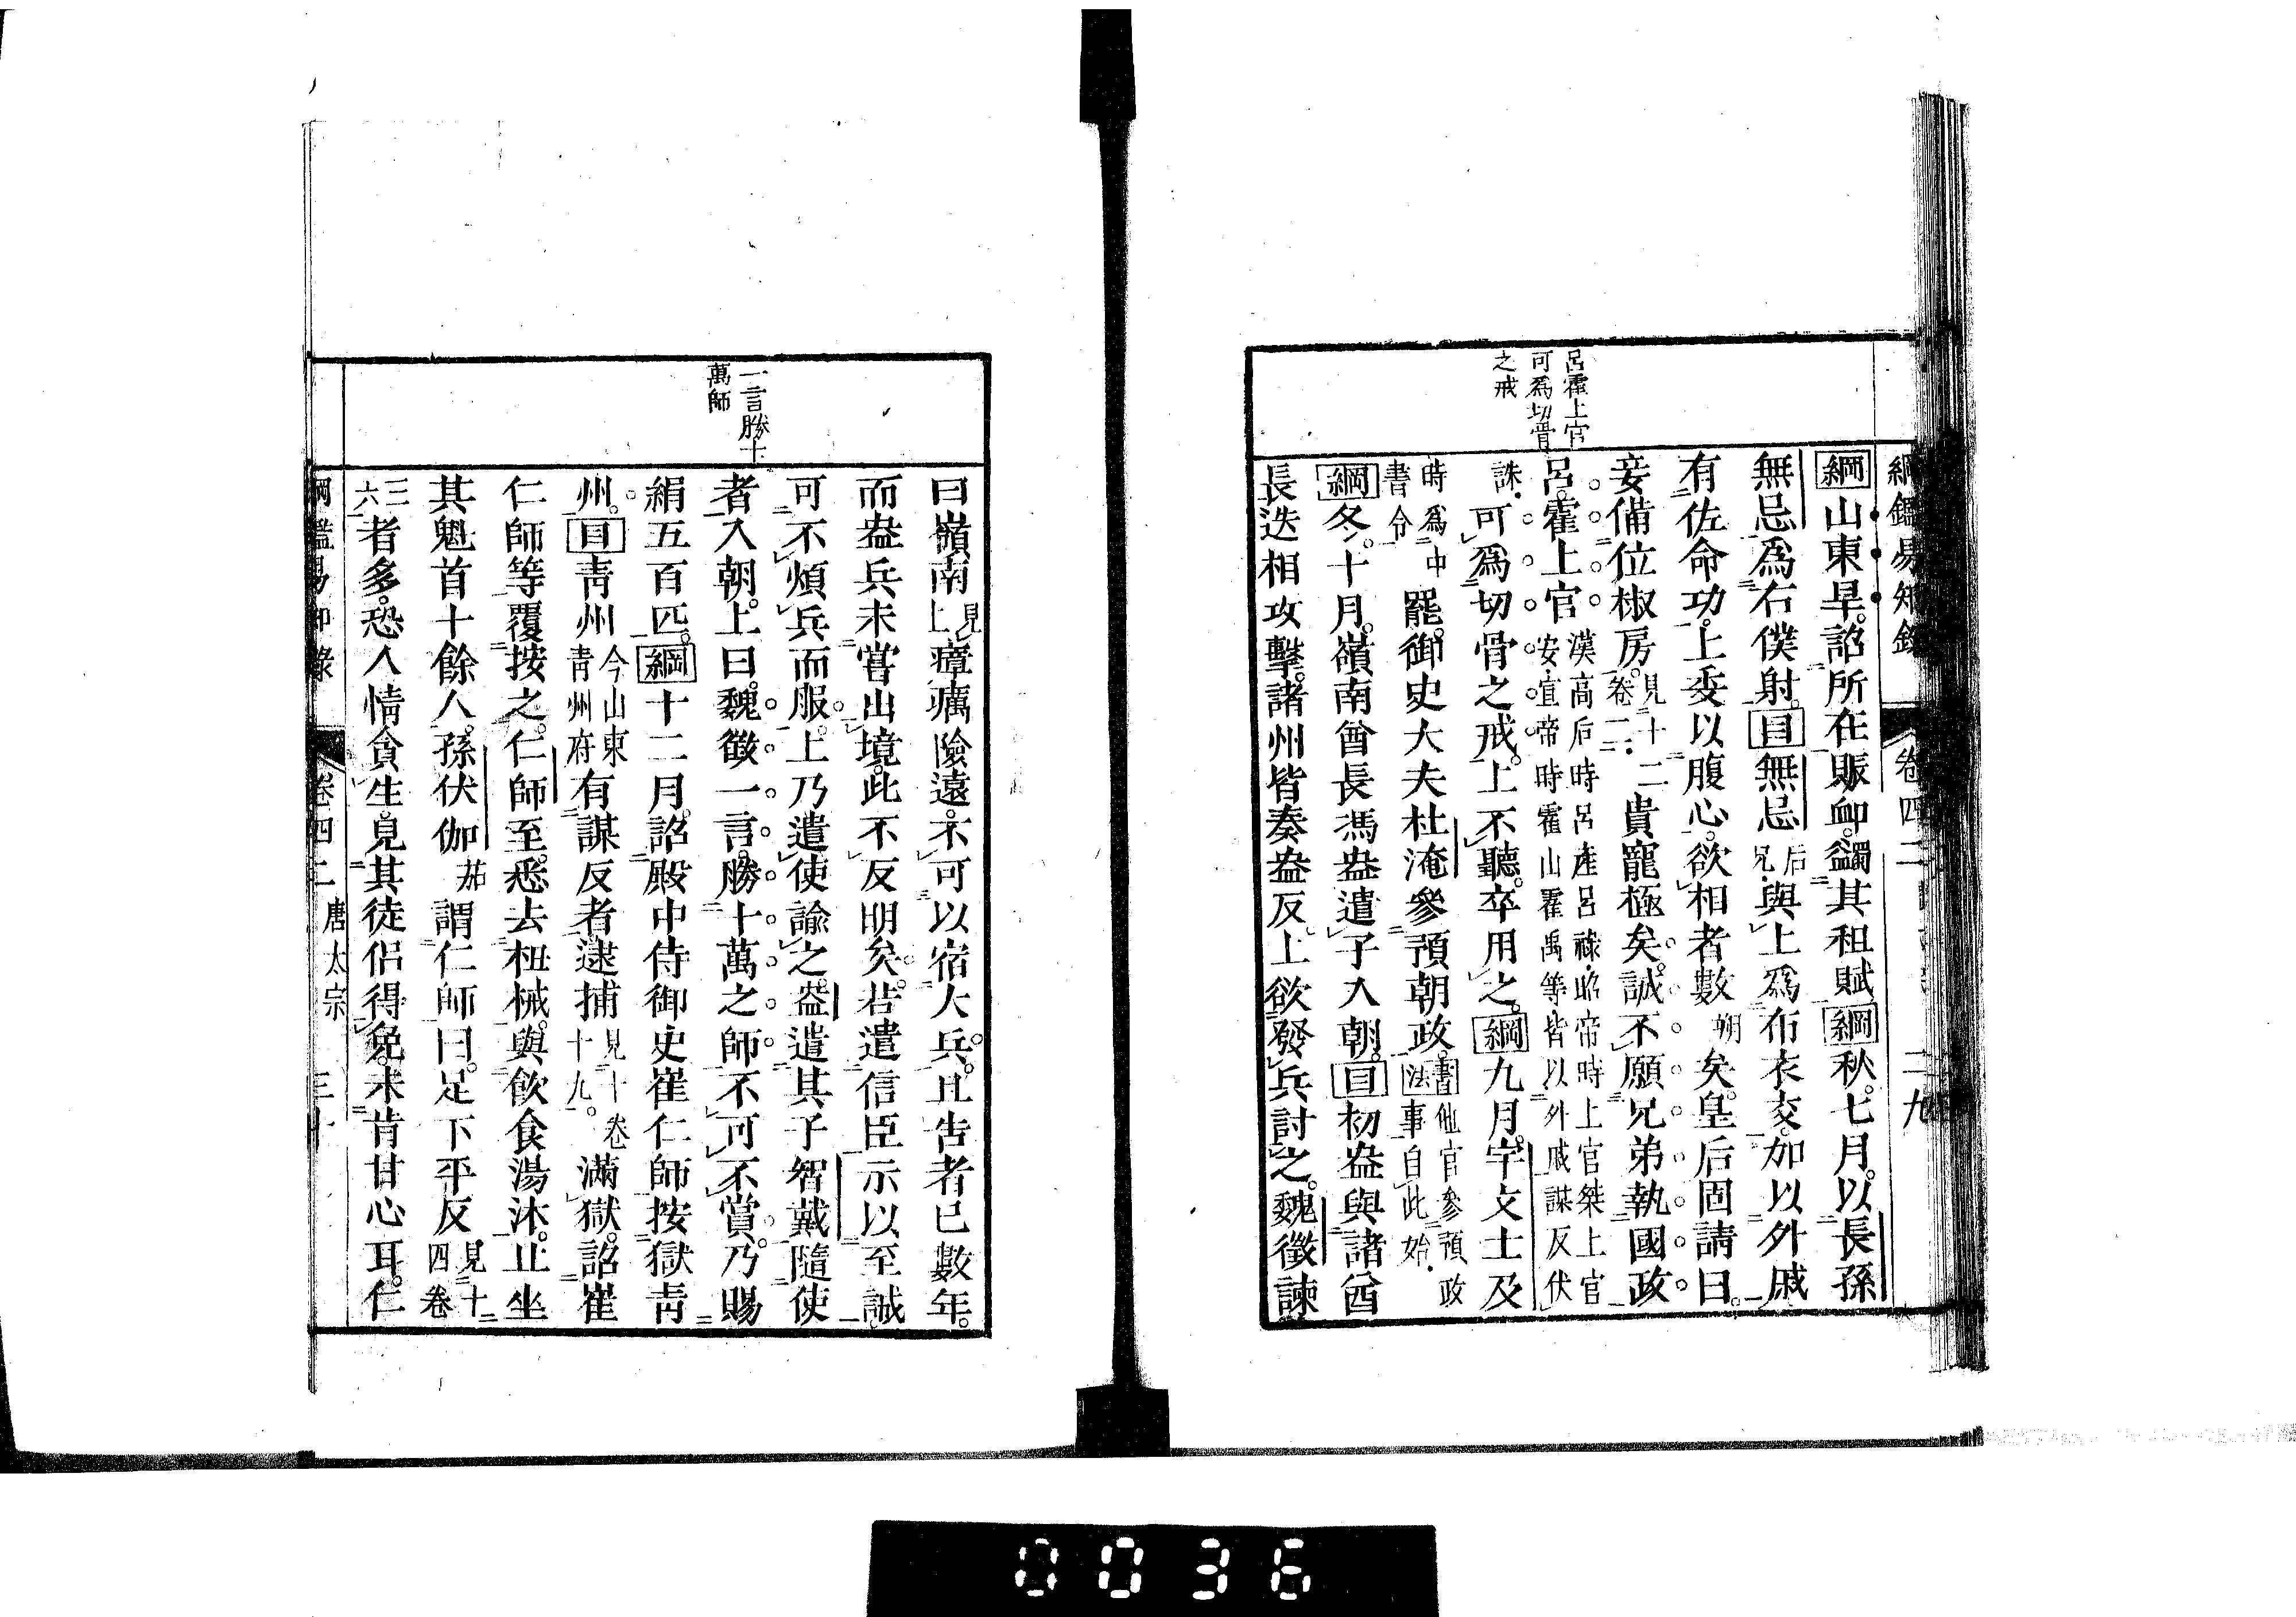 綱鑑易知錄 卷四二 二九
呂霍上官
可爲切骨
之戒
綱山東旱。詔所在賑卹。蠲其租賦。綱秋。七月。以長孫
無忌爲右僕射。目無忌后兄。與上爲布衣交。加以外戚
有佐命功。上委以腹心。欲相者數朔矣。皇后固請曰。
妾備位椒房。見十二卷二二。貴寵極矣。誠不願兄弟執國政
呂。霍上官漢高后時呂產呂祿。昭帝時上官桀上官安。宣帝時霍山霍禹等。皆以外戚謀反伏
誅。可爲切骨之戒。上不聽。卒用之。綱九月。宇文士及
時爲中書令。罷。御史大夫杜淹參預朝政。書法他官參預政事自此始。
綱冬。十月。嶺南酋長馮盎遣子入朝。目初盎與諸酋
長迭相攻擊。諸州皆奏盎反。上欲發兵討之。魏徵諫
一言勝十
萬師
曰嶺南見上瘴癘險遠。不可以宿大兵。且告者已數年。
而盎兵未嘗出境。此不反明矣。若遣信臣示以至誠。
可不煩兵而服。上乃遣使諭之。盎遣其子智戴隨使
者入朝。上曰。魏徵一言。勝十萬之師。不可不賞。乃賜
絹五百匹。綱十二月。詔殿中侍御史崔仁師按獄靑
州。目靑州今山東靑州府有謀反者。逮捕見十卷十九。滿獄。詔崔
仁師等覆按之。仁師至。悉去杻械。與飮食湯沐。止坐
其魁首十餘人。孫伏伽茄謂仁師曰。足下平反見十四卷
三六者多。恐人情貪生。見其徒侶得免。未肯甘心耳。仁
綱鑑易知錄 卷四二 唐太宗 三十
0036